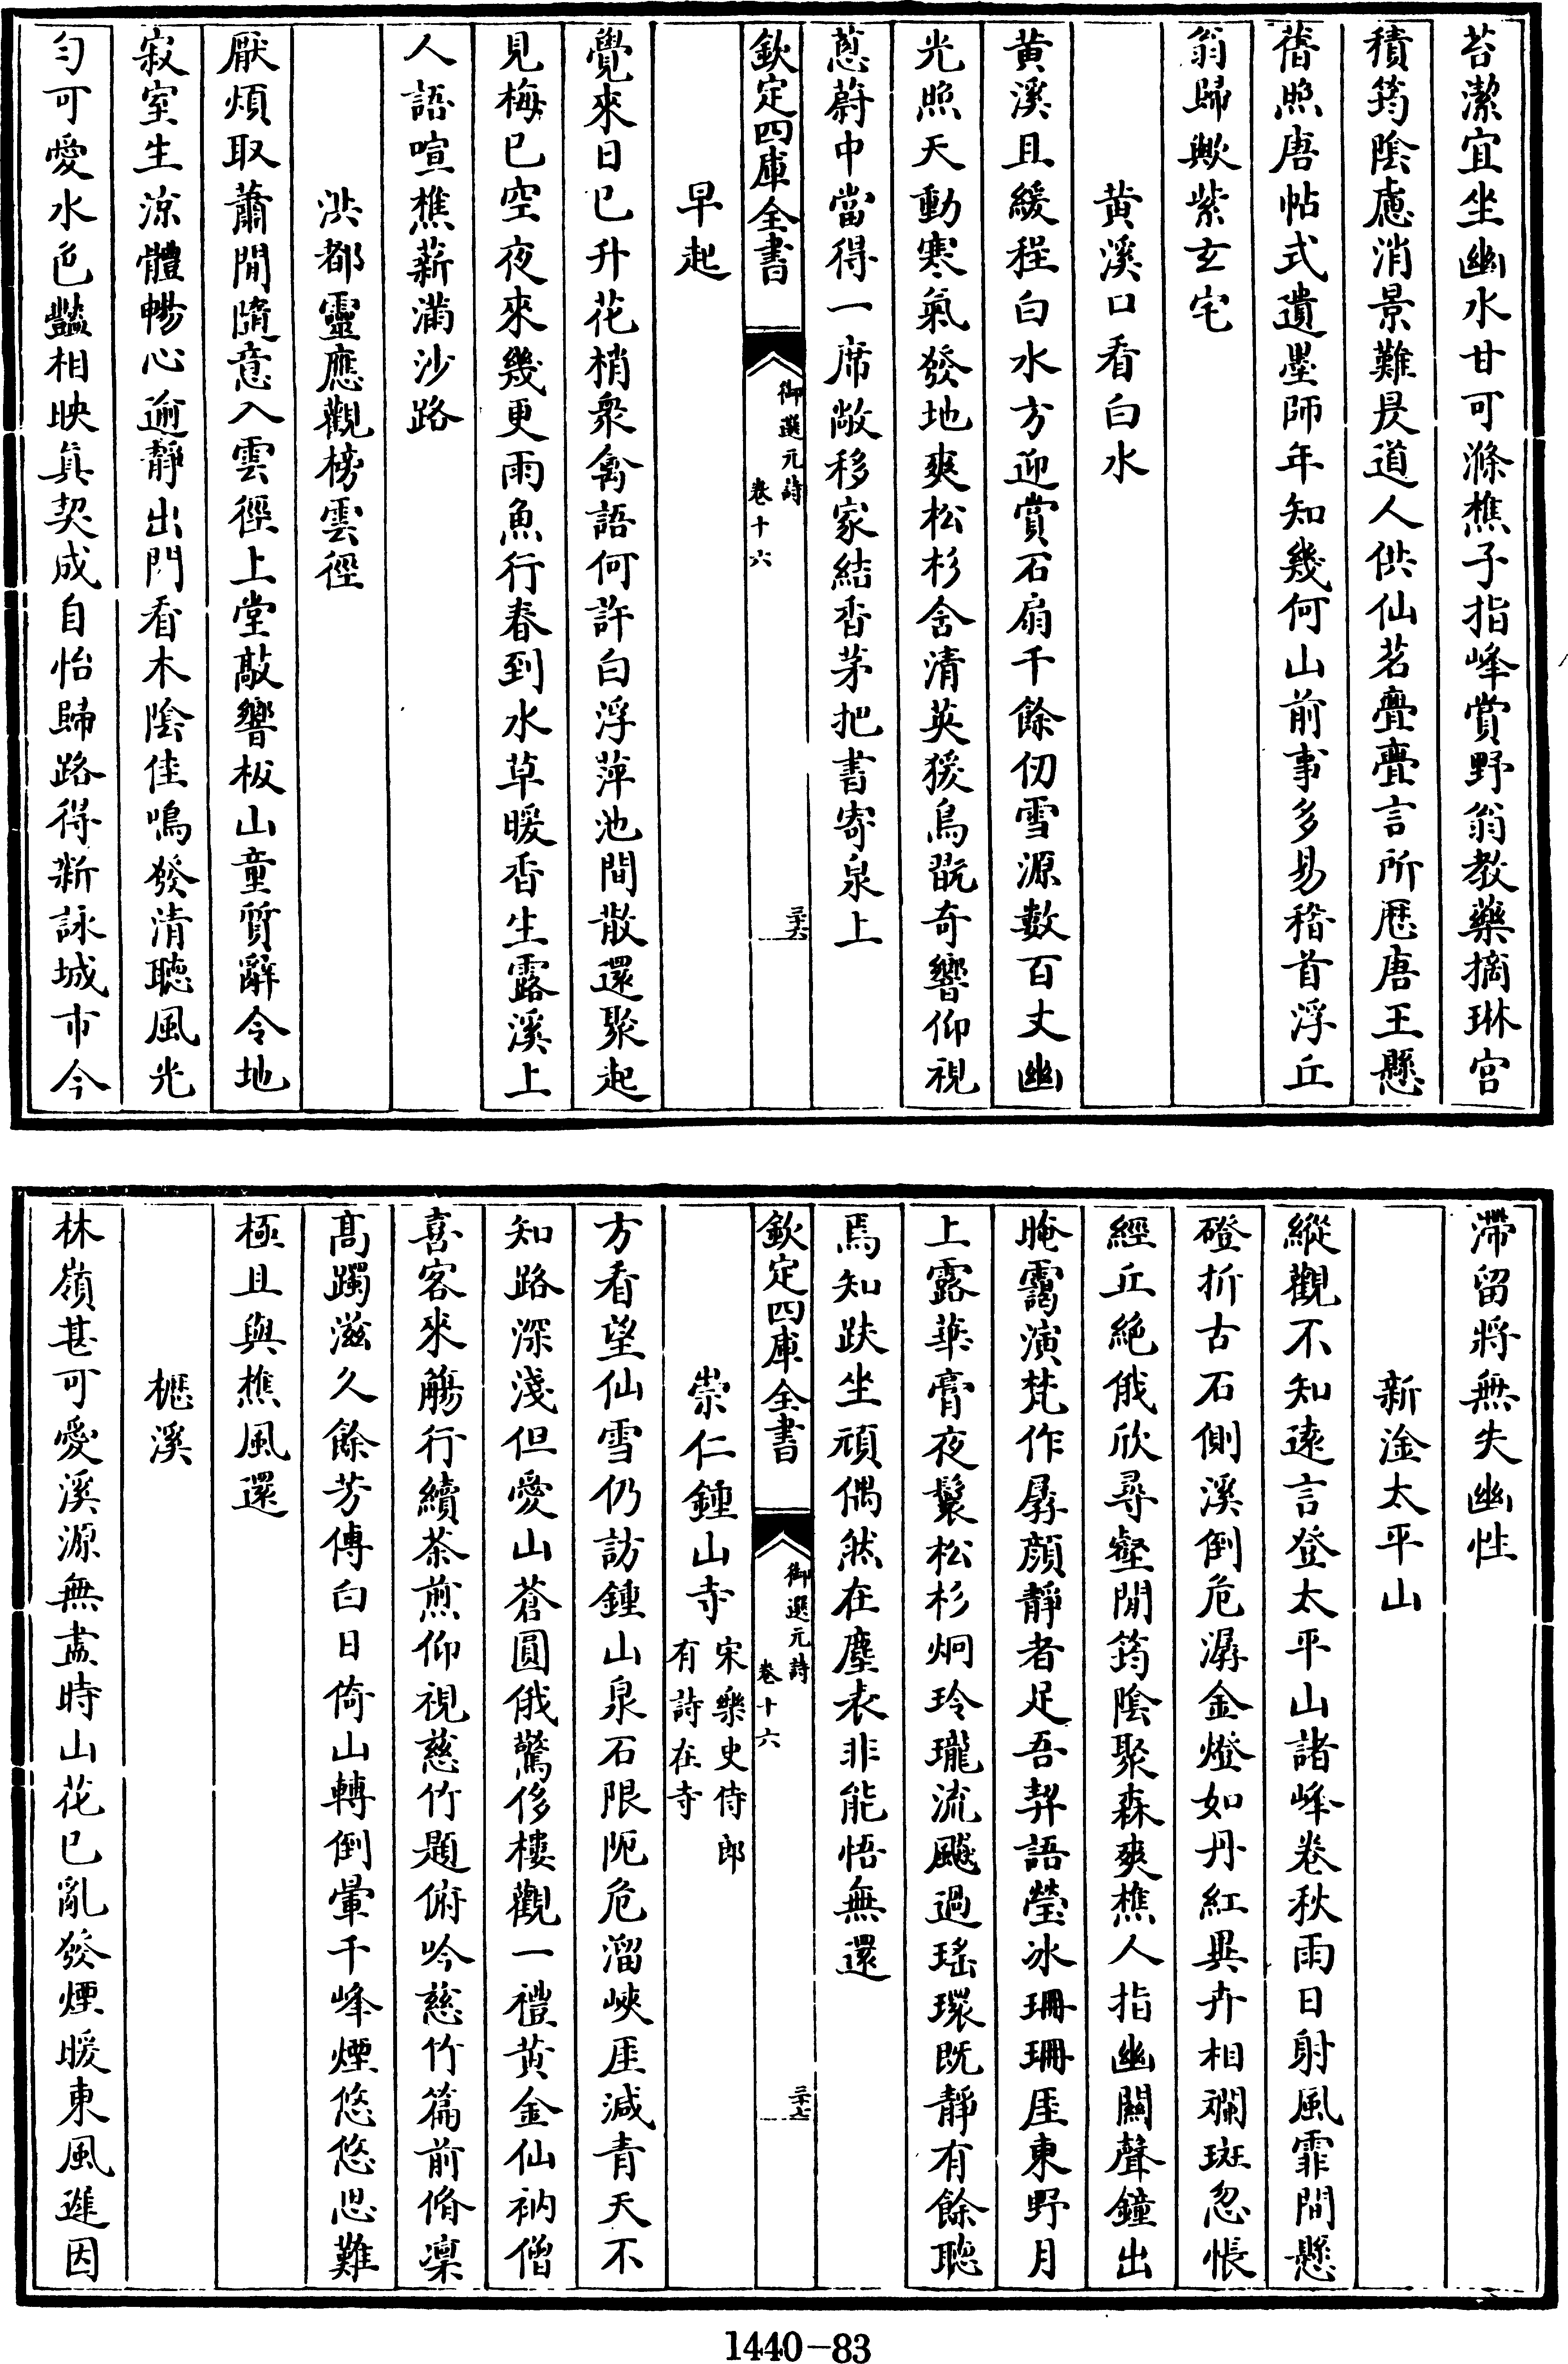 苔潔宜坐幽水甘可滌樵子指峰賞野翁教藥摘琳宫
積筠陰慮消景難昃道人供仙茗亹亹言所歴唐王懸
舊照唐帖式遺墨師年知幾何山前事多易稽首浮丘
翁歸歟紫玄宅
黄溪口看白水
黄溪且緩程白水方迎賞石扇千餘仞雪源數百丈幽
光照天動寒氣發地爽松杉含清英猨鳥翫奇響仰視
蔥蔚中當得一席敞移家結香茅把書寄泉上
欽定四庫全書
御選元詩
卷十六
三十六
早起
覺來日已升花梢衆禽語何許白浮萍池間散還聚起
見梅已空夜來幾更雨魚行春到水草暖香生露溪上
人語喧樵薪滿沙路
洪都靈應觀榜雲徑
厭煩取蕭閒隨意入雲徑上堂敲響板山童質辭令地
寂室生涼體暢心逾靜出門看木陰佳鳴發清聽風光
勻可愛水色豔相映真契成自怡歸路得新詠城市今
滯留將無失幽性
新淦太平山
縱觀不知遠言登太平山諸峰卷秋雨日射風霏間懸
磴折古石側溪倒危潺金燈如丹紅異卉相斕斑忽悵
經丘絶俄欣尋壑閒筠陰聚森爽樵人指幽關聲鐘出
晻靄演梵作孱顔靜者足吾契語瑩冰珊珊厓東野月
上露華膏夜鬟松杉炯玲瓏流飈過瑤環既靜有餘聽
焉知趺坐頑偶然在塵表非能悟無還
欽定四庫全書
御選元詩
卷十六
三十七
崇仁鍾山寺宋樂史侍郎有詩在寺
方看望仙雪仍訪鍾山泉石限阨危溜峽厓減青天不
知路深淺但愛山蒼圓俄驚侈樓觀一禮黄金仙衲僧
喜客來觴行續茶煎仰視慈竹題俯吟慈竹篇前脩凜
高躅滋久餘芳傳白日倚山轉倒暈千峰煙悠悠思難
極且與樵風還
櫪溪
林嶺甚可愛溪源無盡時山花已亂發煙暖東風遲因
1440-83